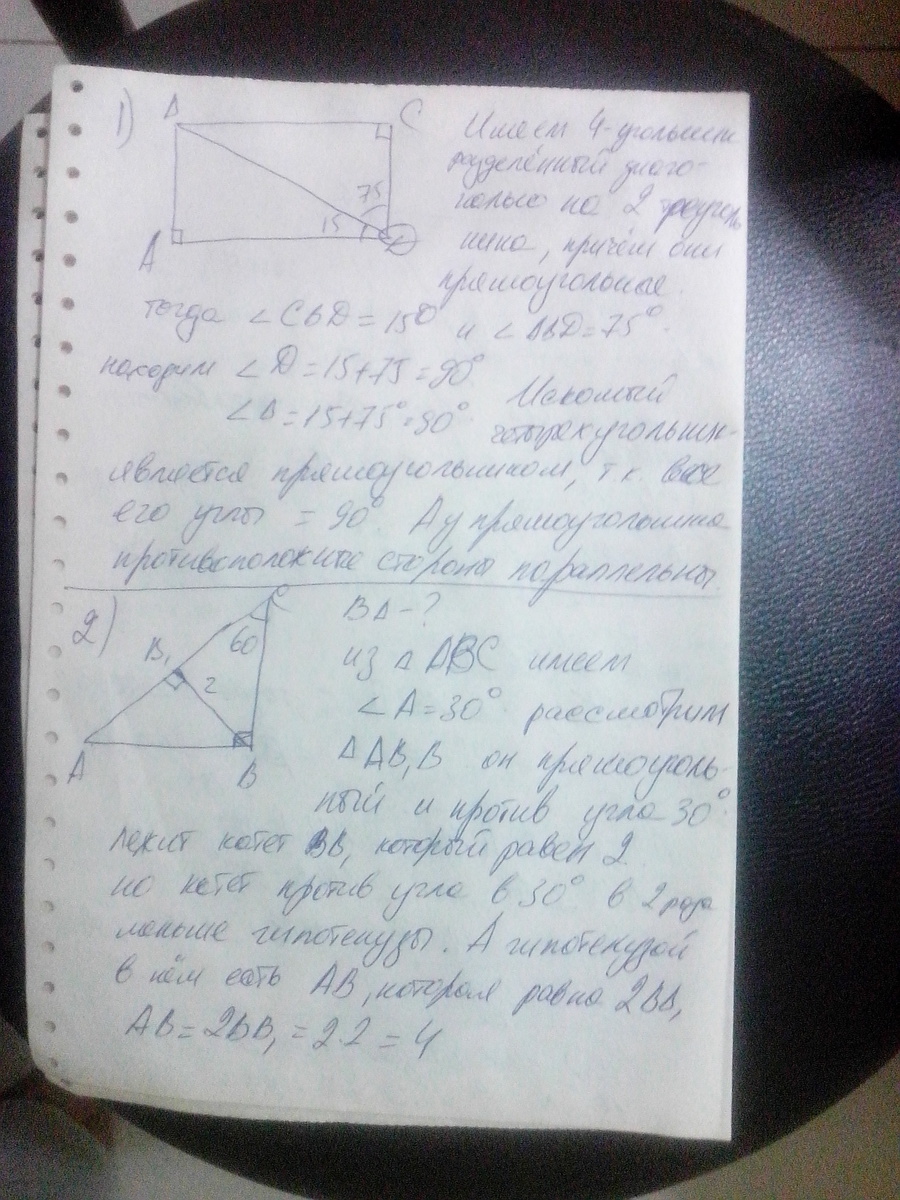 1)
В C
Имеем 4-угольник
разделённый диаго-
75
налью на 2 треуголь
15 D
A
ника, причём они
прямоугольные.
тогда ∠CBD = 15° и ∠ABD = 75°.
находим ∠D = 15+75 = 90°
∠B = 15+75° = 90° Искомый
четырехугольник
является прямоугольником, т.к. все
его углы = 90°. А у прямоугольника
противоположные стороны параллельны.
2)
C
60
B₁
2
A B
из △ ABC имеем
∠A = 30° рассмотрим
△ AB₁B он прямоуголь-
ный и против угла 30°
лежит катет BB₁ который равен 2
но катет против угла в 30° в 2 раза
меньше гипотенузы. А гипотенузой
в нём есть AB, которая равна 2BB₁
AB = 2BB₁ = 2·2 = 4